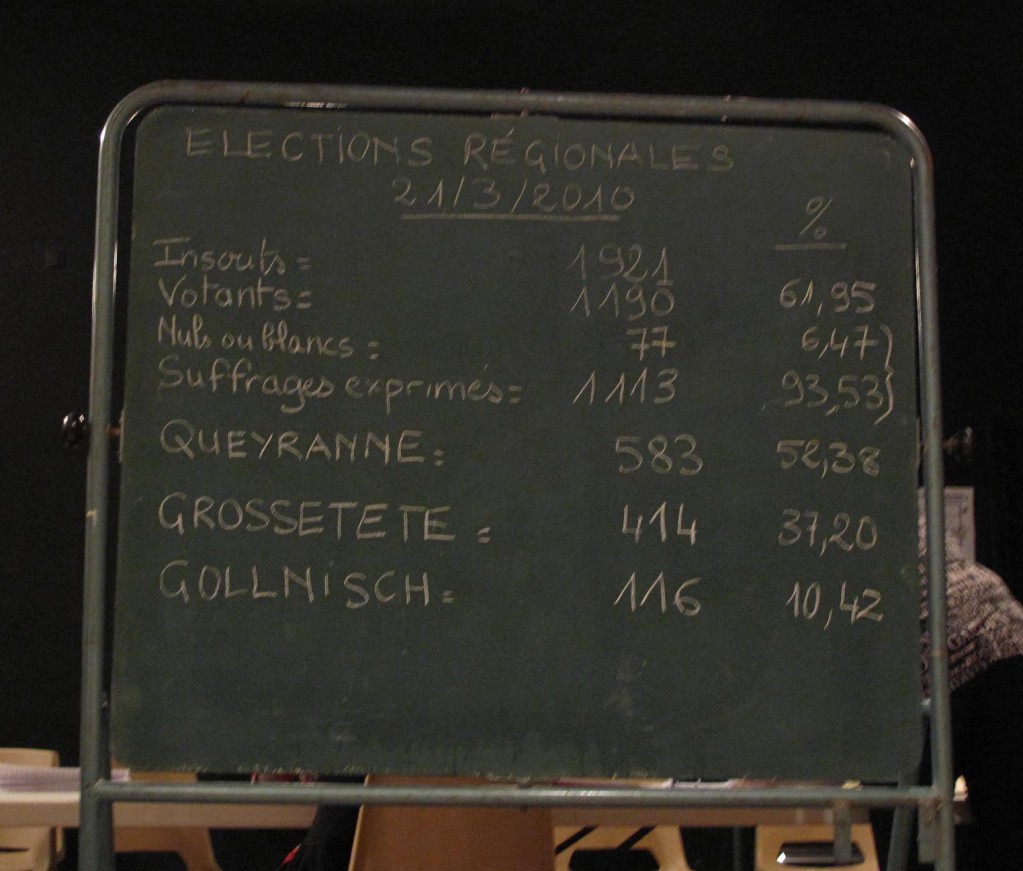 ELECTIONS RÉGIONALES
21/3/2010
%
Inscrits = 1921
Votants = 1190 61,95
Nuls ou blancs = 77 6,47
Suffrages exprimés = 1113 93,53
QUEYRANNE = 583 52,38
GROSSETETE = 414 37,20
GOLLNISCH = 116 10,42